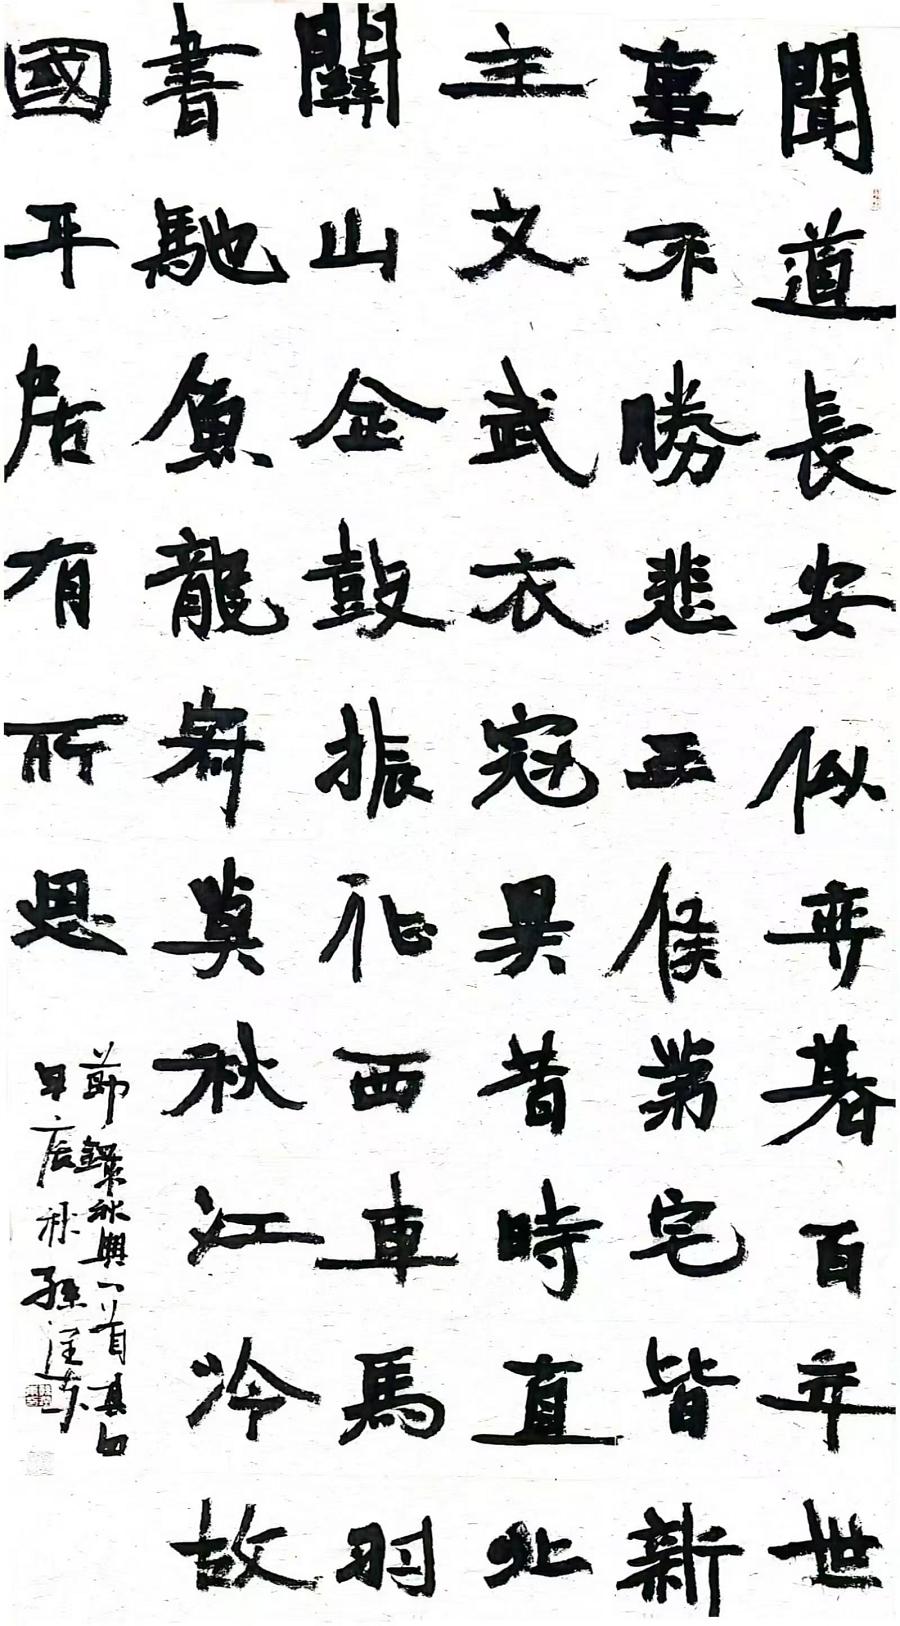 聞道長安似弈碁百年世
事不勝悲王侯第宅皆新
主文武衣冠異昔時直北
關山金鼓振征西車馬羽
書馳魚龍寂莫秋江冷故
國平居有所思
節錄秋興八首其四
甲辰秋孫